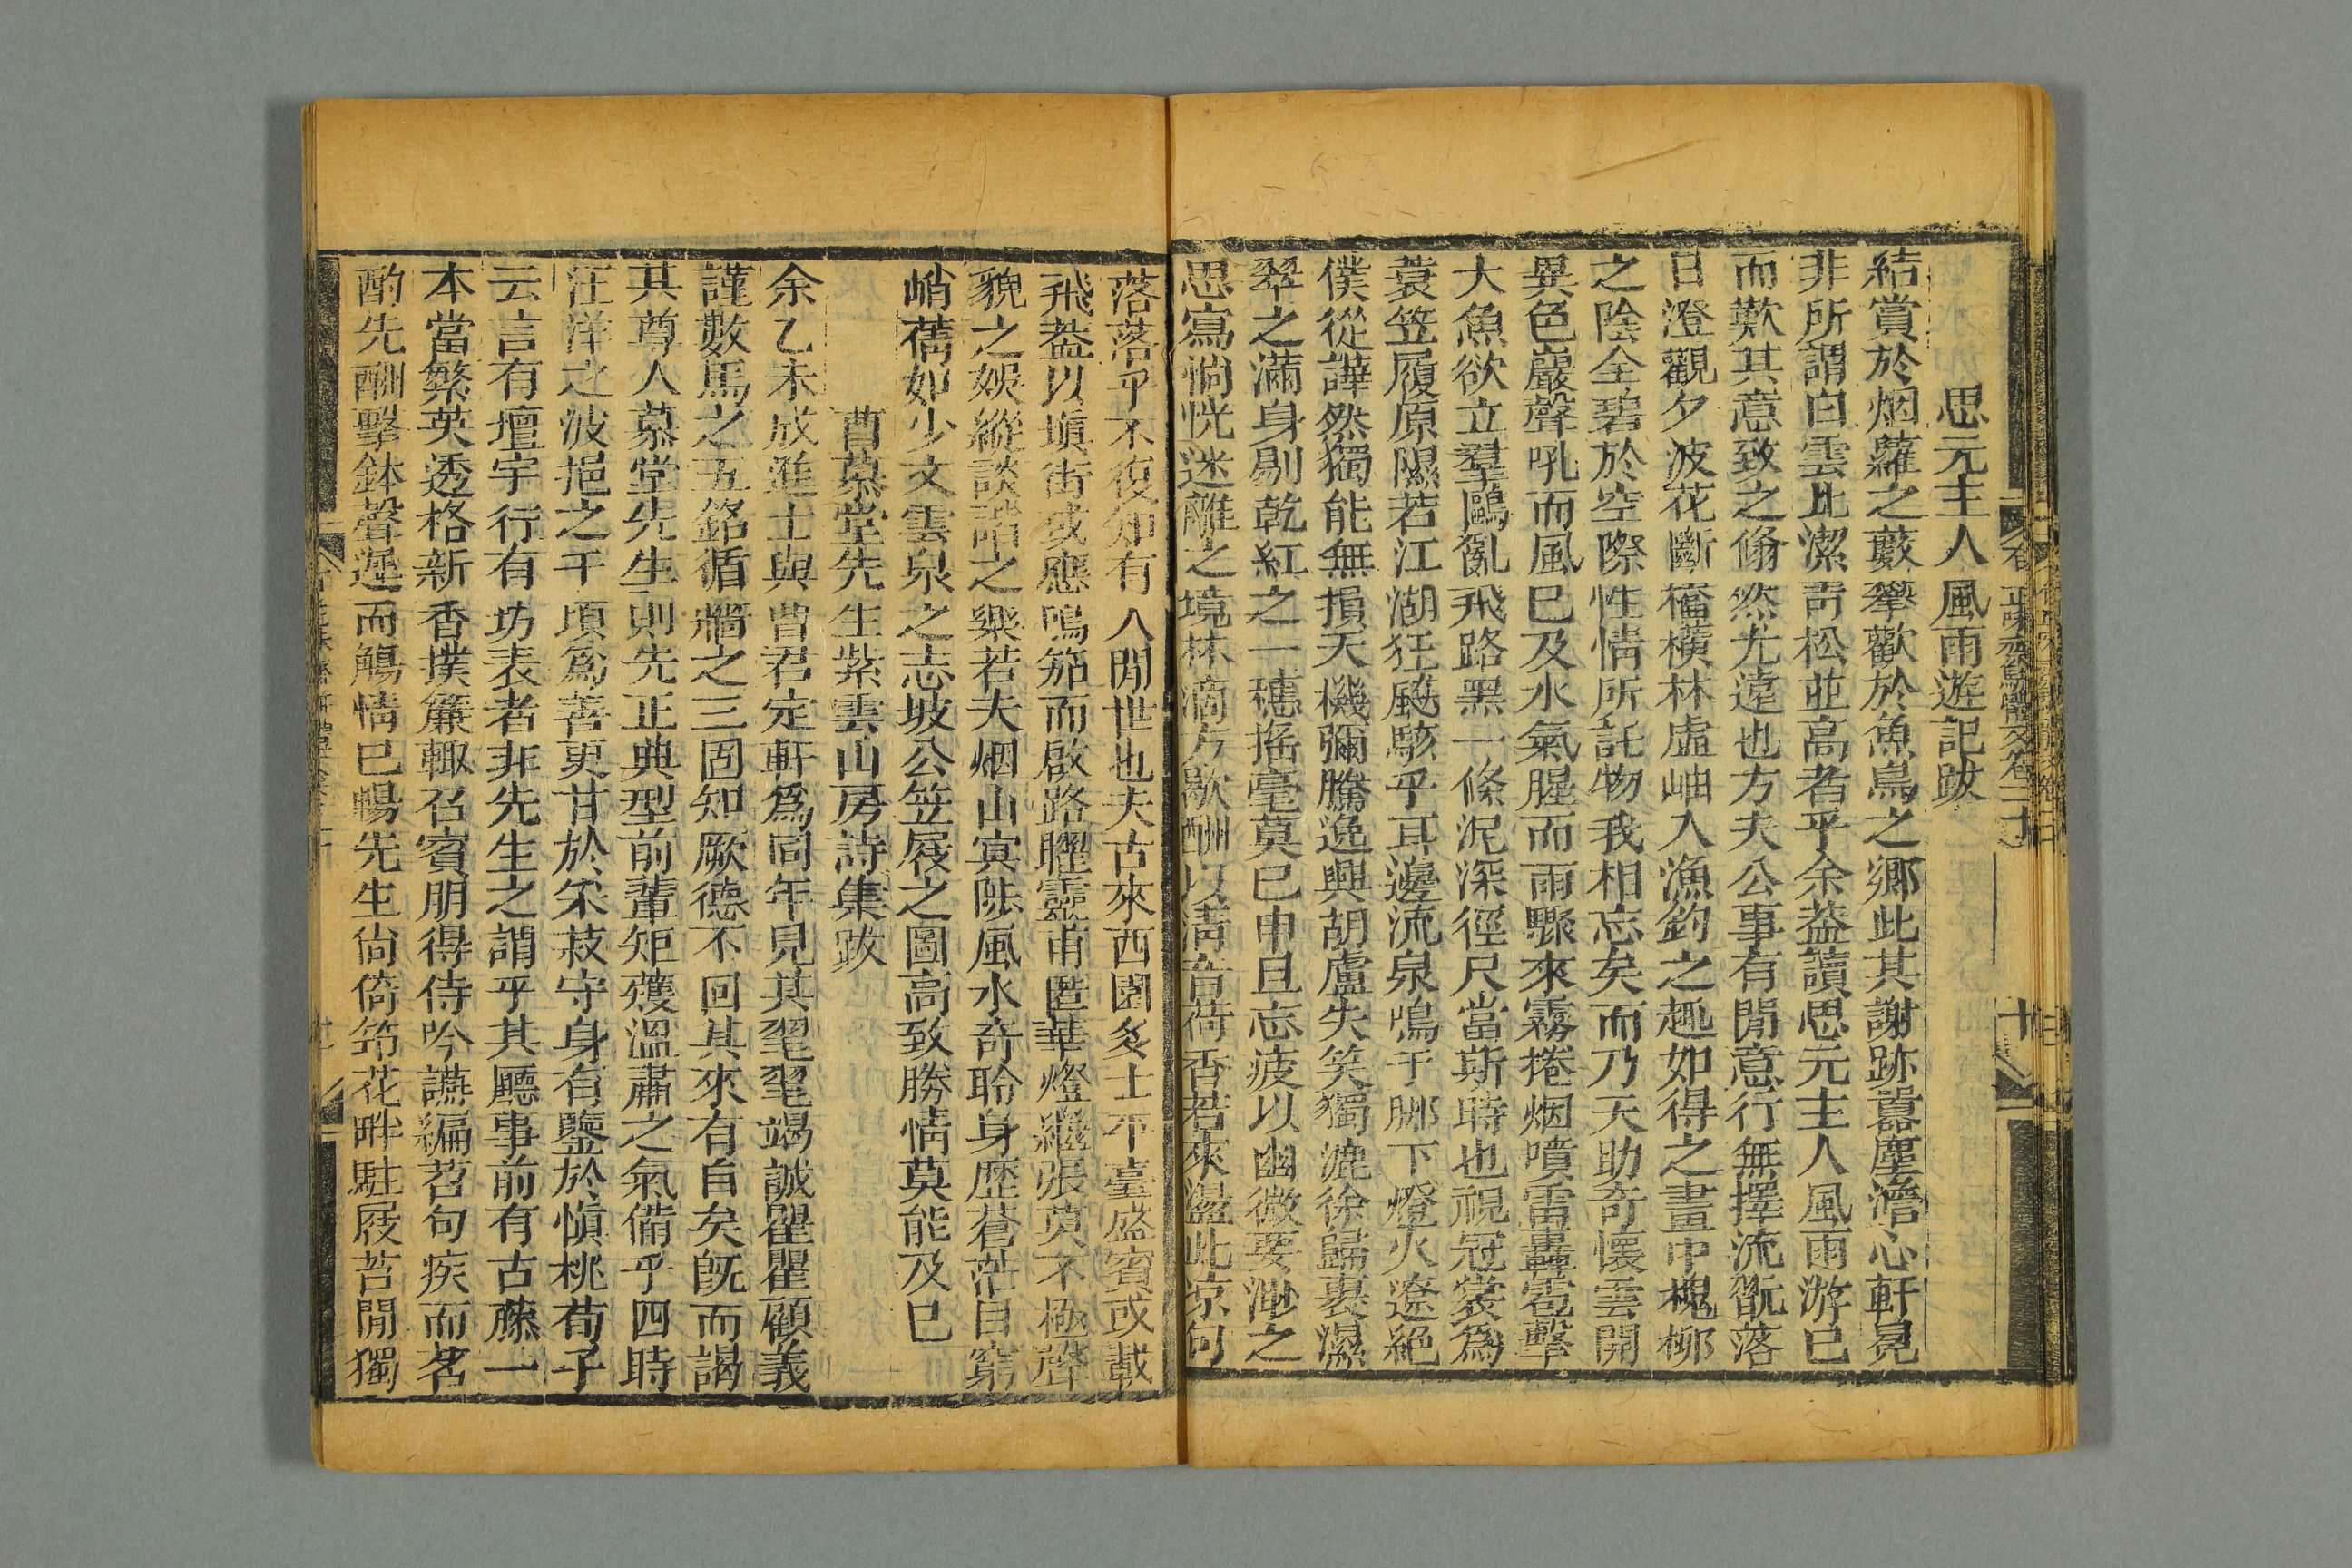 思元主人風雨遊記跋
結賞於烟蘿之藪攀歡於魚鳥之鄉此其謝跡囂塵澹心軒冕
非所謂白雲比潔青松並高者乎余葢讀思元主人風雨游已
而歎其意致之翛然尤遠也方夫公事有閒意行無擇流翫落
日澄觀夕波花斷檣橫林虛岫入漁釣之趣如得之畫中槐柳
之陰全碧於空際性情所託物我相忘矣而乃天助奇懷雲開
異色巖聲吼而風已及水氣腥而雨驟來霧捲烟噴雷轟雹擊
大魚欲立羣鷗亂飛路黑一條泥深徑尺當斯時也視冠裳為
蓑笠履原隰若江湖狂飈駭乎耳邊流泉鳴于脚下燈火遼絕
僕從譁然獨能無損天機彌騰逸興胡盧失笑獨漉徐歸裹濕
翠之滿身剔乾紅之一穗搖毫莫已申旦忘疲以幽微要渺之
思寫惝恍迷離之境林滴方歇酬以清音荷香若來溫此凉句
落落乎不復知有人閒世也夫古來西園文士平臺盛賓或載
飛葢以塡街或應鳴笳而啟路矅靈甫匿華燈繼張莫不極聲
貌之娛縱談諧之樂若夫烟山寘陟風水奇聆身歷蒼茫目窮
峭蒨如少文雲泉之志坡公笠屐之圖高致勝情莫能及已
曹慕堂先生紫雲山房詩集跋
余乙未成進士與曹君定軒為同年見其翼翼竭誠瞿瞿顧義
謹數馬之五銘循牆之三固知厥德不回其來有自矣旣而謁
其尊人慕堂先生則先正典型前輩矩矱溫肅之氣備乎四時
汪洋之波挹之千頃爲善更甘於朱菽守身有鑒於愼桃荀子
云言有壇宇行有坊表者非先生之謂乎其廳事前有古藤一
本當繁英透格新香撲簾輙召賓朋得侍吟讌編苕句疾而茗
酌先酬擊鉢聲遲而觴情已暢先生尙倚筇花畔駐屐苔閒獨